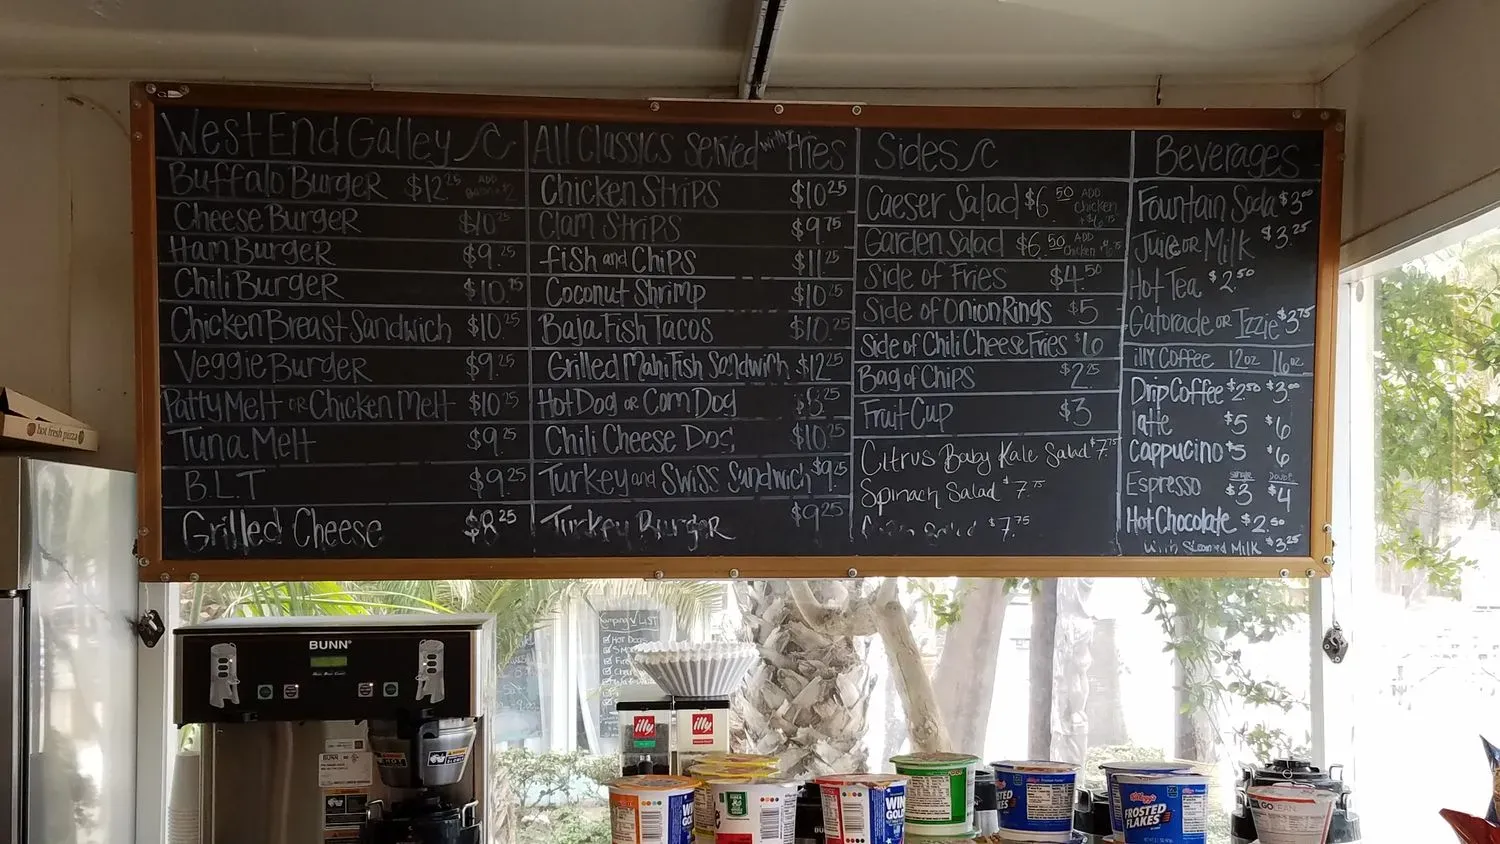 West End Galley
Buffalo Burger $12.25 ADD
Cheese Burger $10.25
Ham Burger $9.25
Chili Burger $10.75
Chicken Breast Sandwich $10.25
Veggie Burger $9.25
Patty Melt or Chicken Melt $10.25
Tuna Melt $9.25
B.L.T $9.25
Grilled Cheese $8.25
All Classics Served with Fries
Chicken Strips $10.25
Clam Strips $9.75
Fish and Chips $11.25
Coconut Shrimp $10.25
Baja Fish Tacos $10.25
Grilled Mahi Fish Sandwich $12.25
Hot Dog or Corn Dog
Chili Cheese Dog $10.25
Turkey and Swiss Sandwich $9.25
Turkey Burger $9.25
Sides
Caeser Salad $6.50 ADD chicken
Garden Salad $6.50 ADD chicken
Side of Fries $4.50
Side of Onion Rings $5
Side of Chili Cheese Fries $6
Bag of Chips $2.25
Fruit Cup $3
Citrus Baby Kale Salad $7.75
Spinach Salad $7.75
Salad $7.75
Beverages
Fountain Soda $3.00
Juice or Milk $3.25
Hot Tea $2.50
Gatorade or Izzie $3.75
illy Coffee 12oz 16oz
Drip Coffee $2.50 $3.00
latte $5 $6
Cappucino $5 $6
single double
Espresso $3 $4
Hot Chocolate $2.50
with Steamed Milk $3.25
hot fresh pizza
BUNN
BUNN
HOT
V LIST
Hot Dogs
illy
illy
Kellogg's
FROSTED
FLAKES
GOLEAN